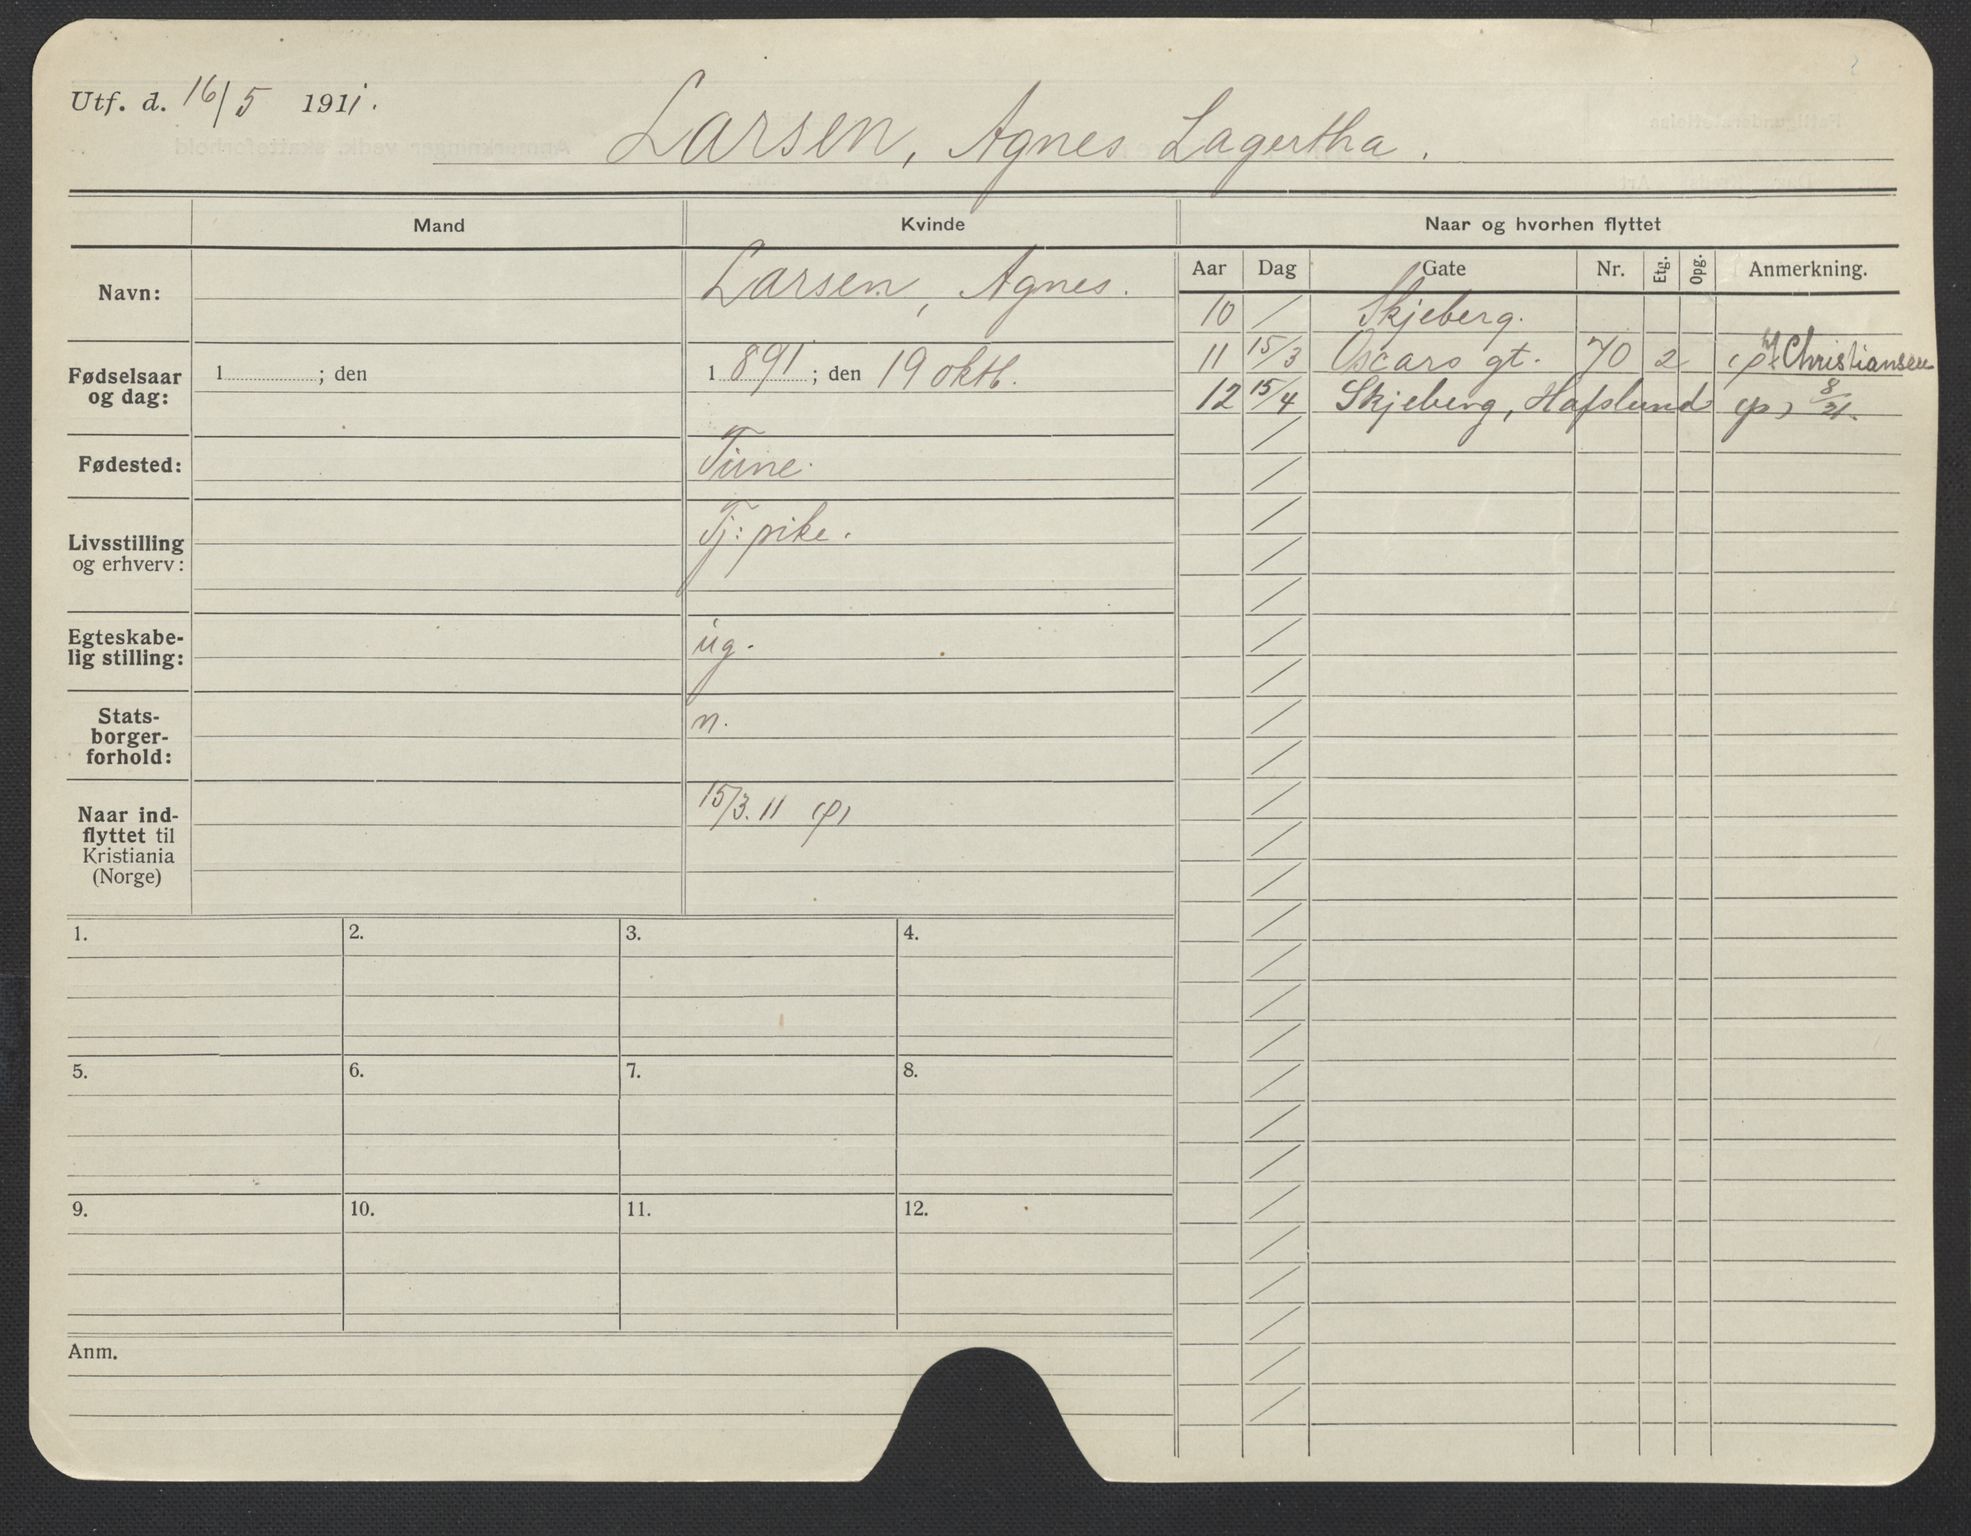 Utf. d. 16/5 1911.
Larsen, Agnes Lagertha.
Mand
Kvinde
Naar og hvorhen flyttet
Navn:
Larsen, Agnes.
Fødselsaar og dag:
1 ; den
1891; den 19 oktb.
Fødested:
Tune.
Livsstilling og erhverv:
Tj: pike.
Egteskabe-
lig stilling:
ug.
Stats-
borger-
forhold:
n.
Naar ind-
flyttet til
Kristiania
(Norge)
15/3. 11 (p)
Aar Dag Gate Nr. Etg. Opg. Anmerkning.
10 / Skjeberg.
11 15/3 Oscars gt. 70 2 (p) Christiansen
12 15/4 Skjeberg, Hafslund (p) 8/21.
1. 2. 3. 4.
5. 6. 7. 8.
9. 10. 11. 12.
Anm.